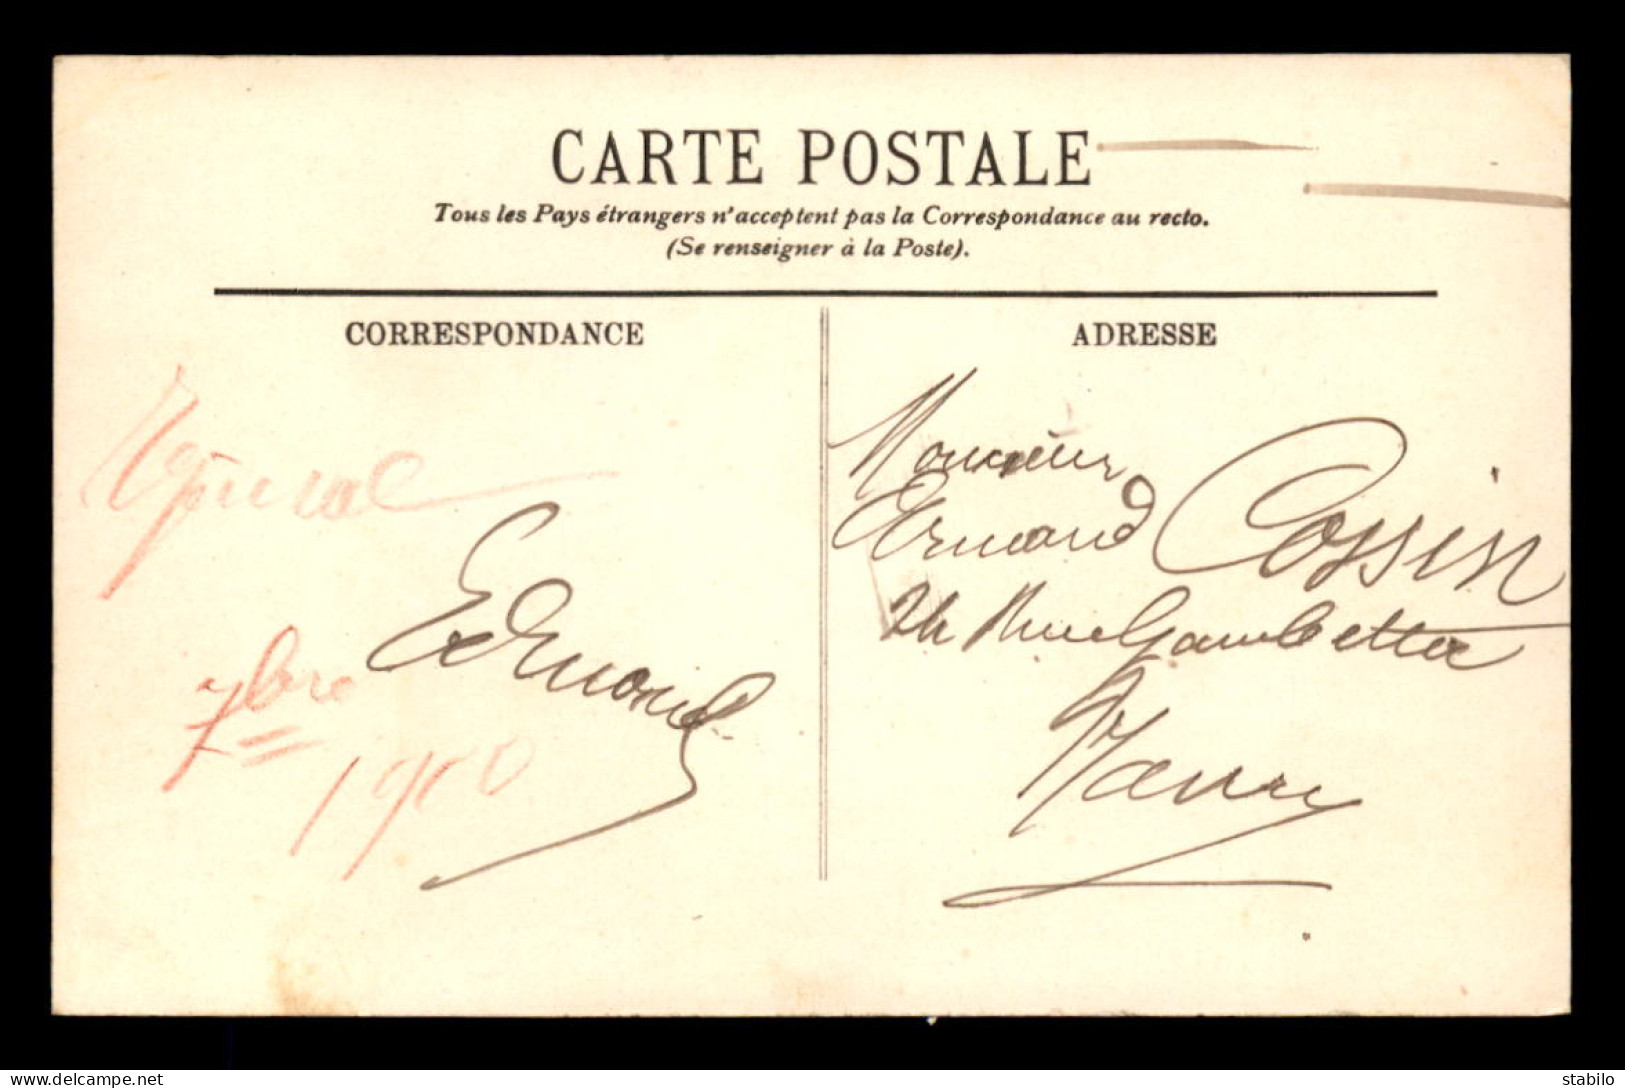 CARTE POSTALE
Tous les Pays étrangers n'acceptent pas la Correspondance au recto.
(Se renseigner à la Poste).
CORRESPONDANCE
7bre
Edmond
ADRESSE
Monsieur
Ernand Cossin
24 Rue Gambetta
Nancy
delcampe.net
stabilo